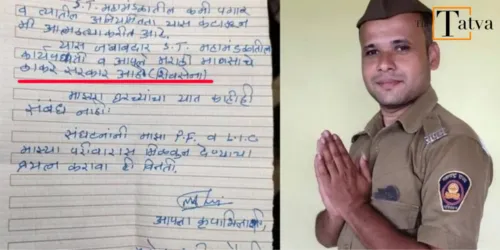 S.T. महामंडळातील कमी पगार
व त्यातील अनियमितता यास कंटाळून
मी आत्महत्या करीत आहे.
यास जबाबदार S.T. महामंडळातील
कार्यपध्दती व आपले मराठी माणसाचे
ठाकरे सरकार आहे (शिवसेना)
माझ्या घरच्यांचा यात काहीही
संबंध नाही.
संघटनांनी माझा P.F. व L.I.C
माझ्या परीवारास मिळवून देण्याचा
प्रयत्न करावा ही विनंती.
आपला कृपाभिलाषी,
Tatva